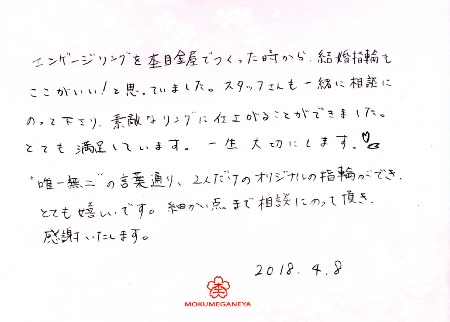 エンゲージリングを杢目金屋でつくった時から、結婚指輪も
ここがいい！と思っていました。スタッフさんも一緒に相談に
のって下さり、素敵なリングに仕上がることができました。
とても満足しています。一生大切にします。
“唯一無二”の言葉通り、2人だけのオリジナルの指輪ができ、
とても嬉しいです。細かい点まで相談にのって頂き、
感謝いたします。
2018.4.8
MOKUMEGANEYA